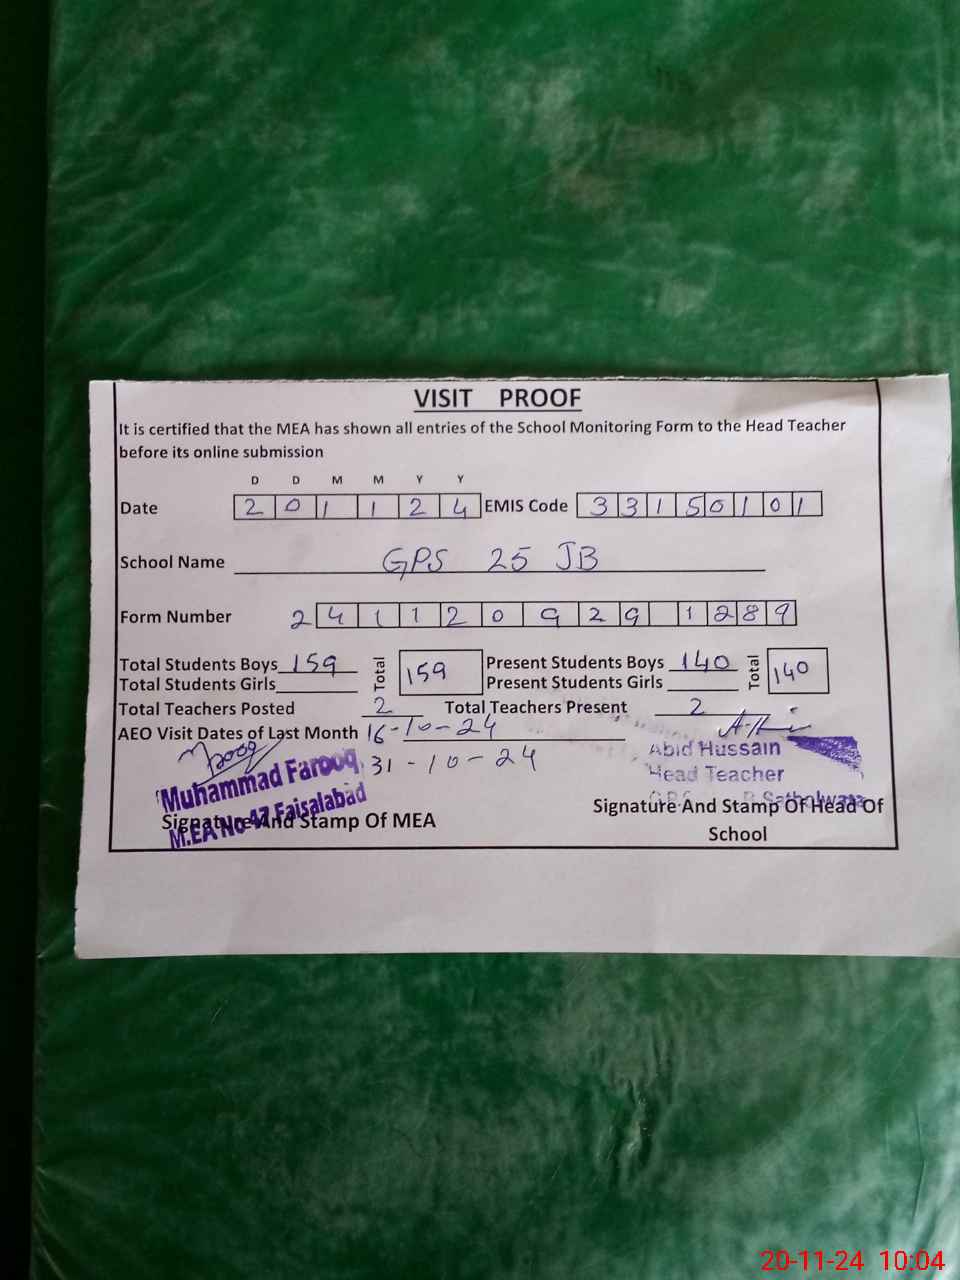 VISIT PROOF
It is certified that the MEA has shown all entries of the School Monitoring Form to the Head Teacher
before its online submission
D D M M Y Y
Date 2 0 1 1 2 4 EMIS Code 3 3 1 5 0 1 0 1
School Name GPS 25 JB
Form Number 2 4 1 1 2 0 9 2 9 1 2 8 9
Total Students Boys 159 Total 159 Present Students Boys 140 Total 140
Total Students Girls Present Students Girls
Total Teachers Posted 2 Total Teachers Present 2
AEO Visit Dates of Last Month 16-10-24
31-10-24
Muhammad Farooq
M.EA No 47 Faisalabad
Signature And Stamp Of MEA
Abid Hussain
Head Teacher
Signature And Stamp Of Head Of
School
20-11-24 10:04